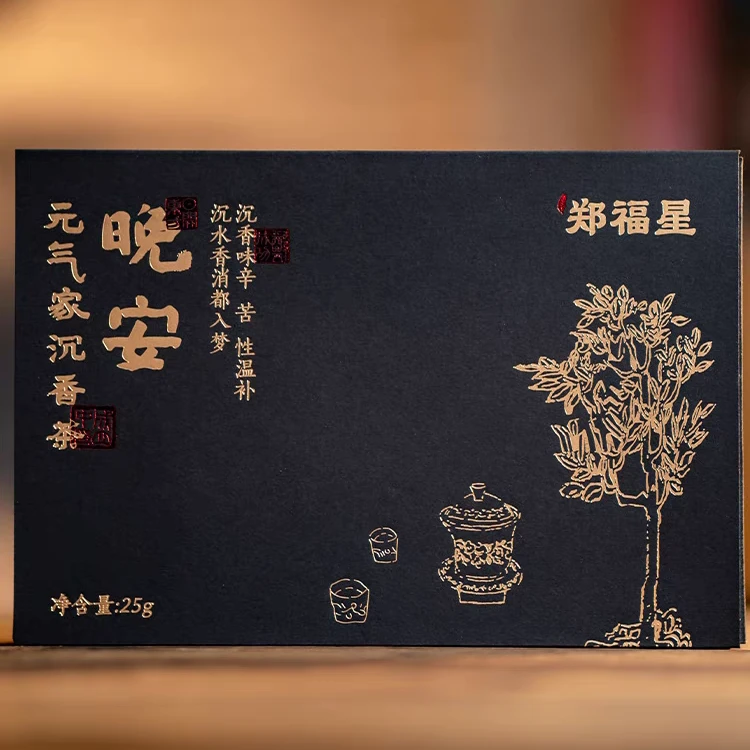 郑福星
沉香味辛 苦 性温补
沉水香消都入梦
晚安
元气家沉香茶
净含量:25g